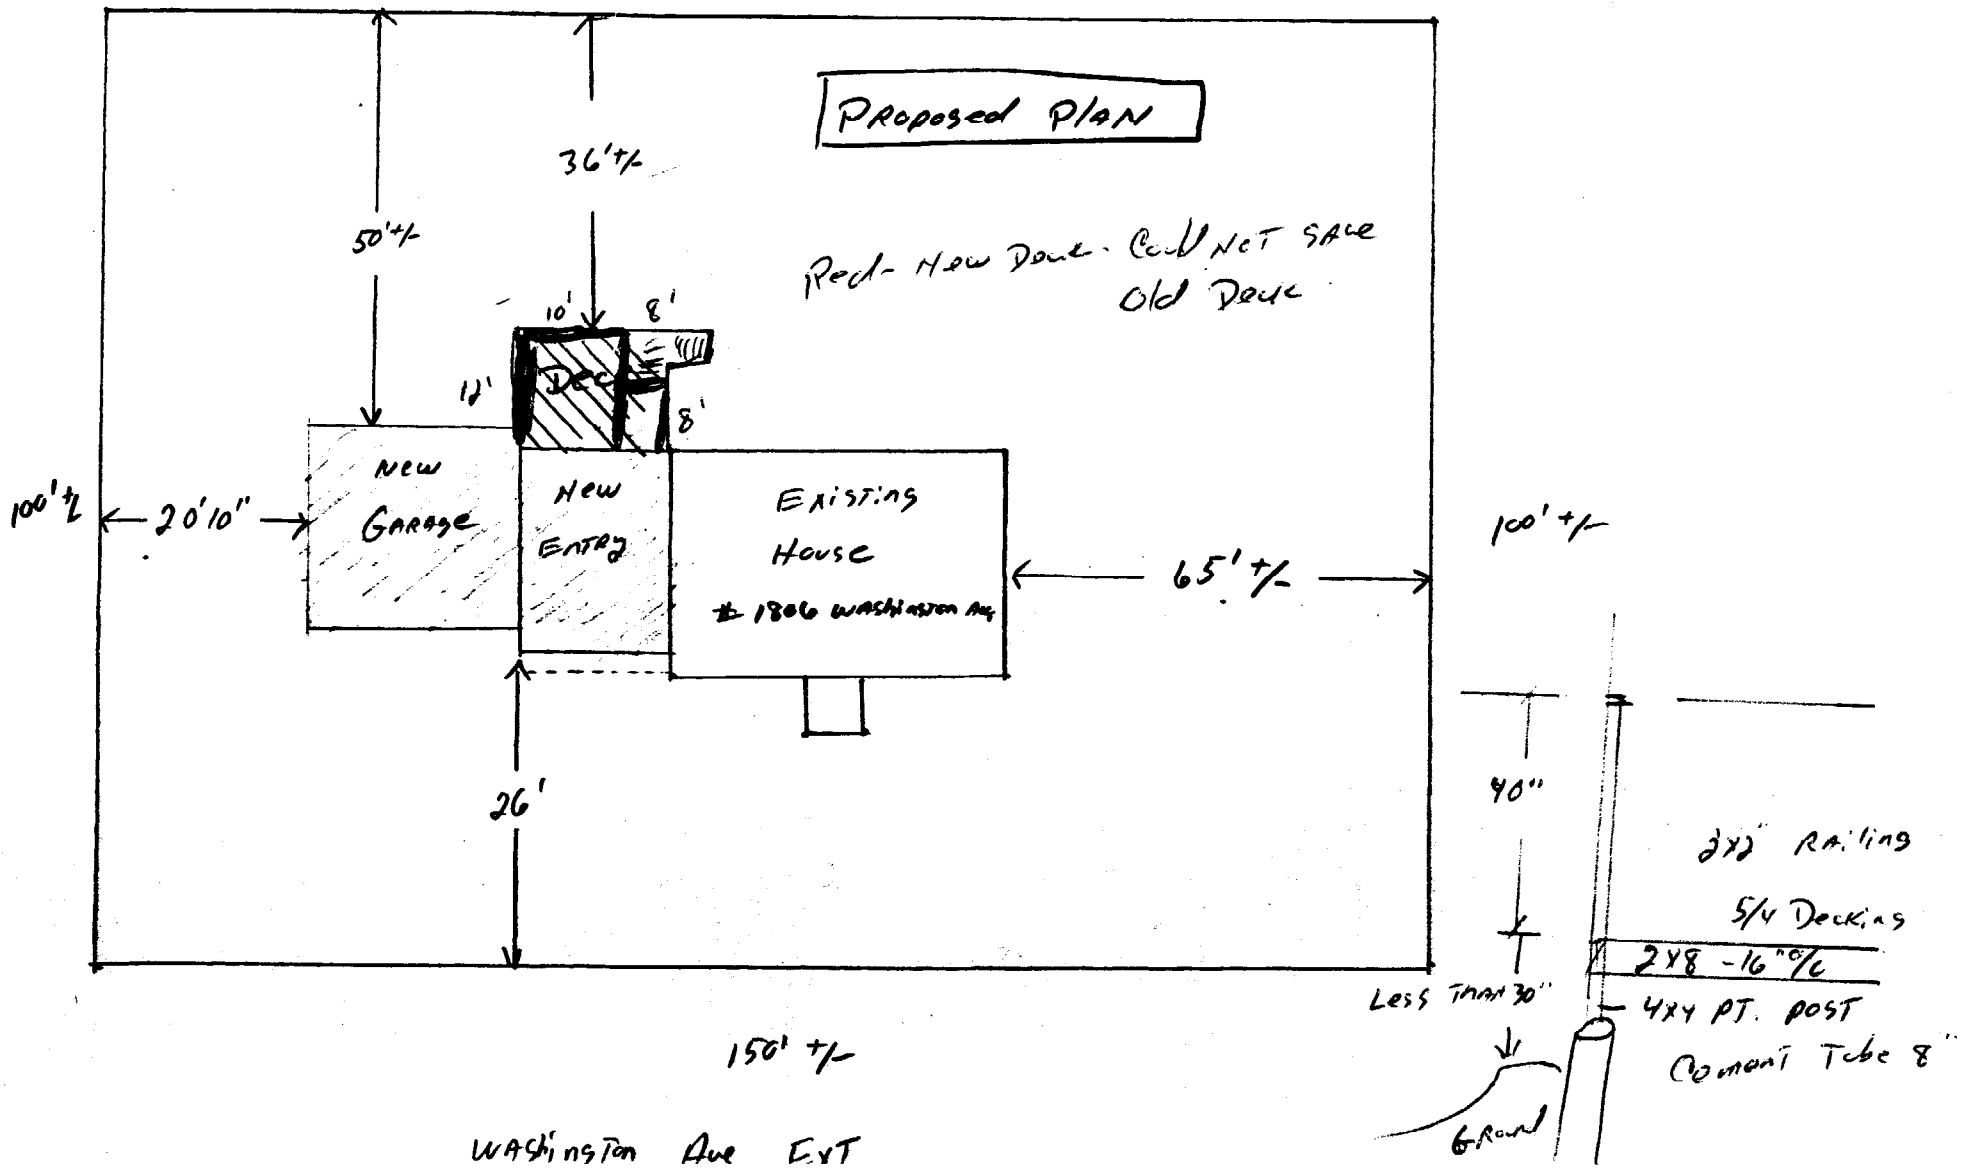 Proposed Plan
36'+/-
50'+/-
Red - New Deck - Could Not Save
Old Deck
10'
8'
12'
Dec
8'
New
Garage
New
Entry
Existing
House
# 1806 Washington Ave
100'+/-
20'10"
65'+/-
100'+/-
26'
40"
2x2" Railing
5/4 Decking
2x8 - 16" o/c
Less Than 30"
4x4 PT. Post
Cement Tube 8"
Ground
150' +/-
Washington Ave Ext